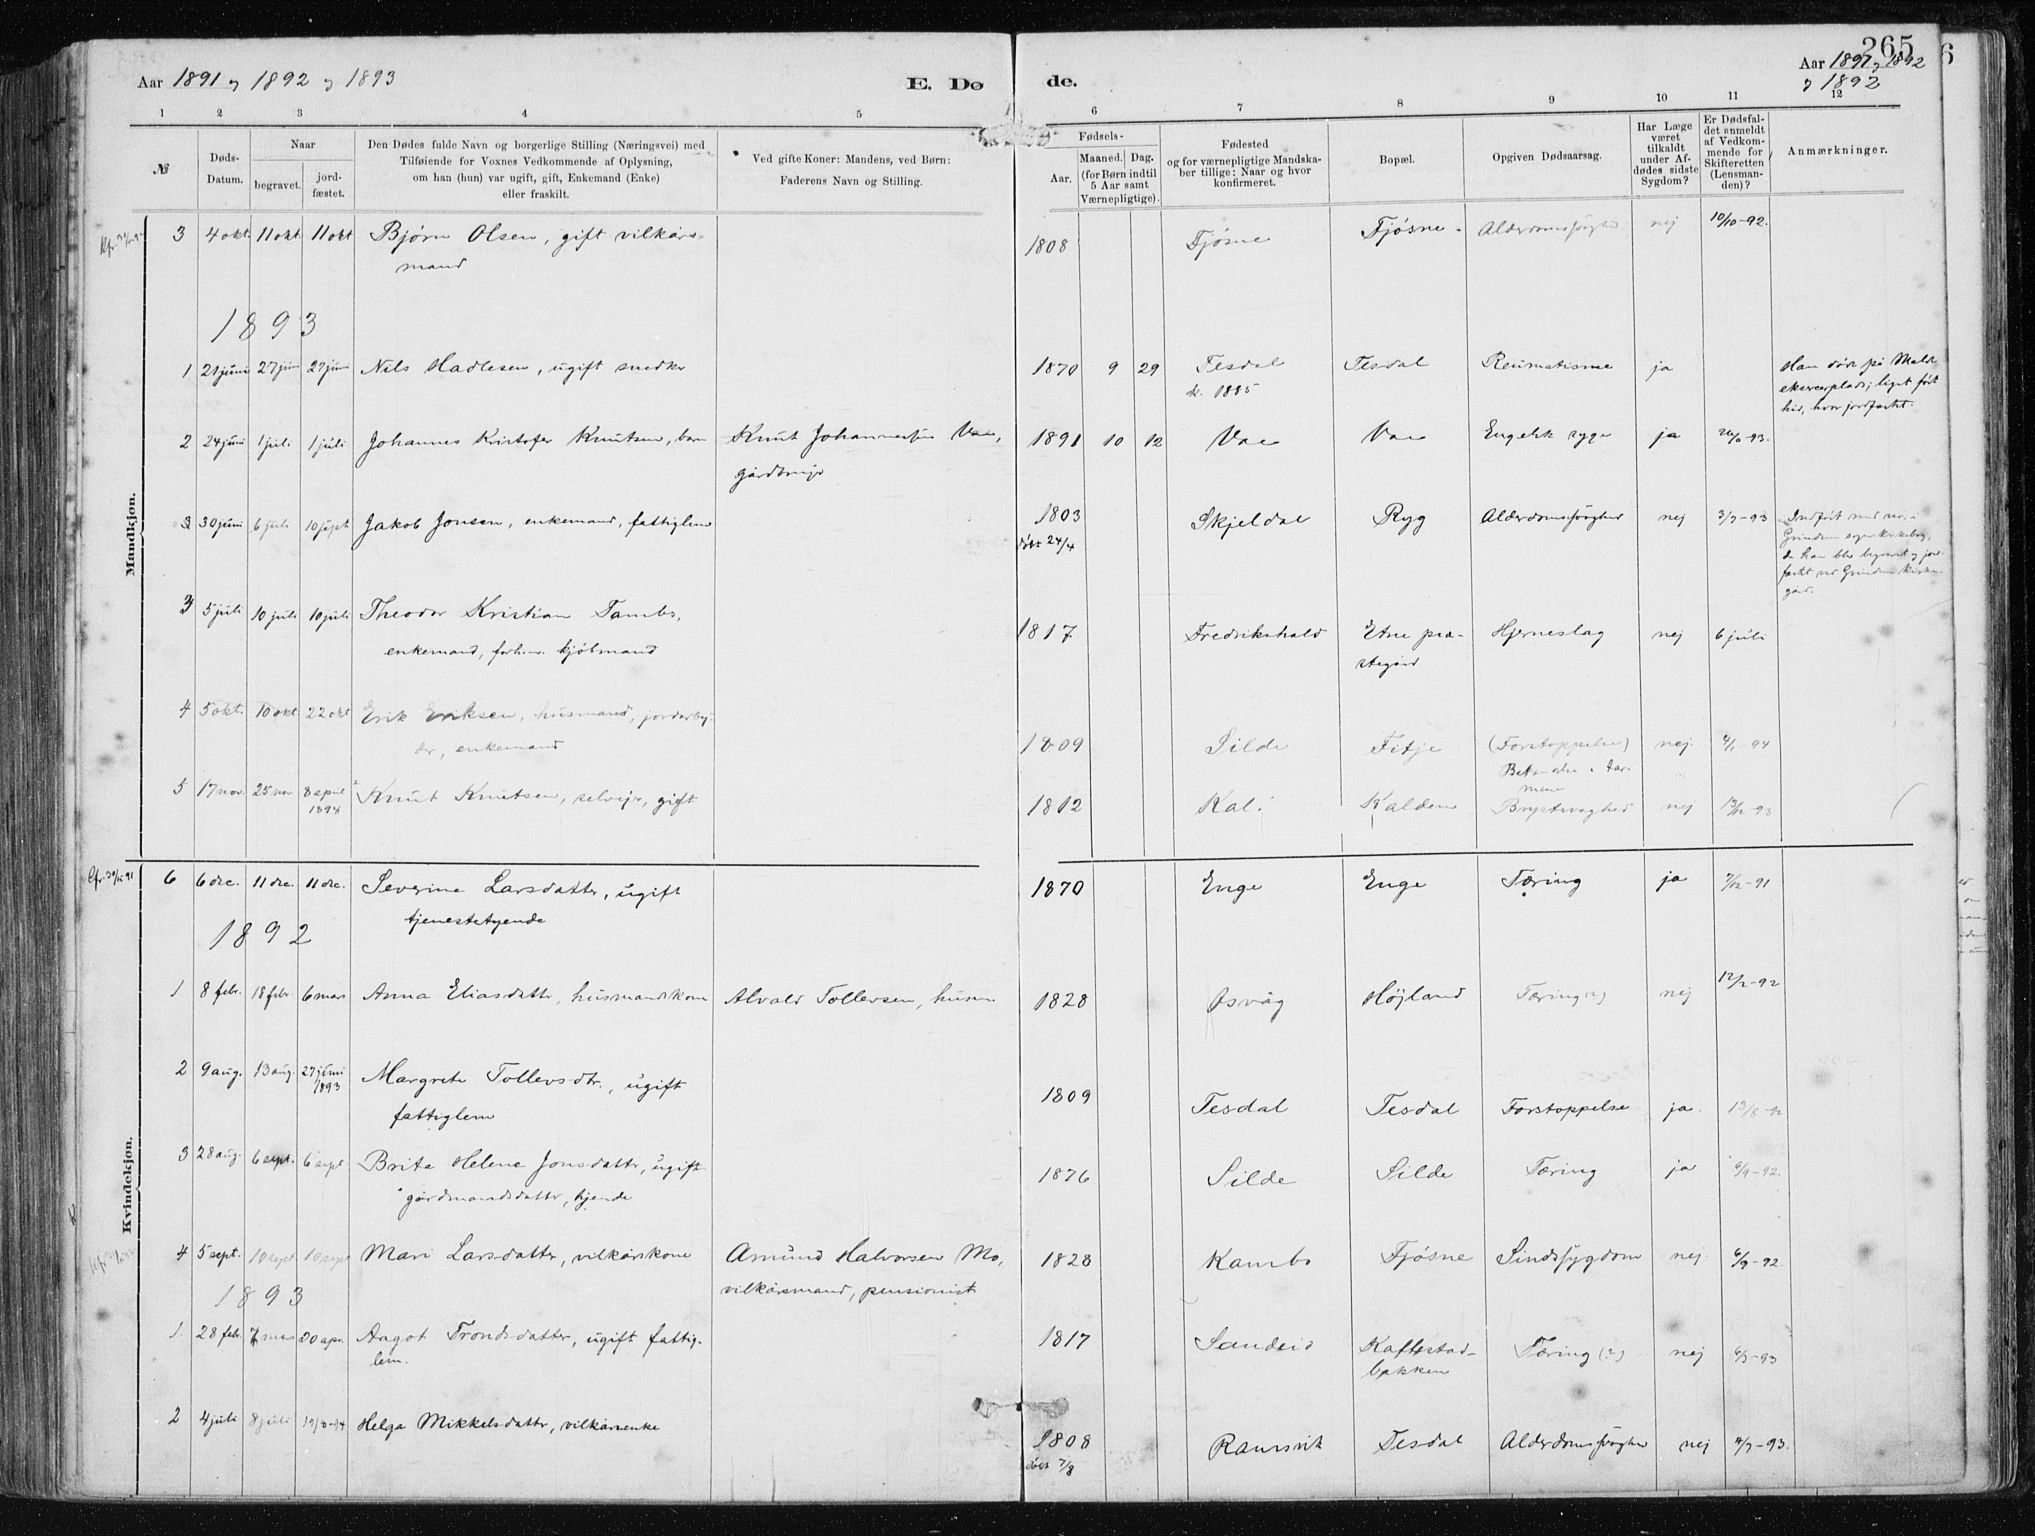 Aar 1891 og 1892 og 1893
E. Dø
de.
265
Aar 1891 og 1892
og 1893
1 2 3 4 5 6 7 8 9 10 11 12
№
Døds-
Datum.
Naar
begravet.
jord-
fæstet.
Den Dødes fulde Navn og borgerlige Stilling (Næringsvei) med
Tilføiende for Voxnes Vedkommende af Oplysning,
om han (hun) var ugift, gift, Enkemand (Enke)
eller fraskilt.
Ved gifte Koner: Mandens, ved Børn:
Faderens Navn og Stilling.
Fødsels-
Aar.
Maaned. Dag.
(for Børn indtil
5 Aar samt
Værnepligtige).
Fødested
og for værnepligtige Mandska-
ber tillige: Naar og hvor
konfirmeret.
Bopæl.
Opgiven Dødsaarsag.
Har Læge
været
tilkaldt
under Af-
dødes sidste
Sygdom?
Er Dødsfal-
det anmeldt
af Vedkom-
mende for
Skifteretten
(Lensman-
den)?
Anmærkninger.
Mandkjøn.
3 4 okt. 11 okt 11 okt Bjørn Olsen, gift vilkårs- 1808 Fjøsne Fjøsne Alderdomssvaghed nej 10/10-92.
mand
1893
1 21 juni 27 juni 27 juni Nils Hadlesen, ugift snedker 1870 9 29 Tesdal Tesdal Reumatisme ja Han døde på
k. 1885 ekserserplads; liget ført
hid, hvor jordfæstet.
2 24 juni 1 juli 1 juli Johannes Kristofer Knutsen, barn Knut Johannessen Vae, 1891 10 12 Vae Vae Engelsk syge ja
gårdbruger
3 30 juni 6 juli 10 sept Jakob Jonsen, enkemand, fattiglem 1803 Skjeldal Ryg Alderdomssvaghed nej 3/7-93
døbt 24/4
3 5 juli 10 juli 10 juli Theodor Kristian Tambs, 1817 Fredrikshald Etne præ- Hjerneslag nej 6 juli
enkemand, forhenv. kjøbmand stegård
4 5 okt. 10 okt 22 okt Erik Eriksen, husmand, jordarbej- 1809 Silde Fitje (Forstoppelse) nej
der, enkemand
5 17 nov. 25 nov 8 april Knut Knutsen, selvejer, gift 1812 Kalden Brystsvaghed nej
Kvindekjøn.
6 6 dec. 11 dec. 11 dec. Severine Larsdatter, ugift 1870 Enge Enge Tæring ja 7/12-91
tjenestetyende
1892
1 8 febr. 18 febr. 6 mars Anna Eliasdatter, husmandskone Alvald Tollevsen, husm. 1828 Osvåg Højland Tæring (?) nej 12/2-92
2 9 aug. 13 aug. 27 juni Margrete Tollevsdtr., ugift 1809 Tesdal Tesdal Forstoppelse ja
1893
fattiglem
3 28 aug. 6 sept. 6 sept Brita Helene Jonsdatter, ugift 1876 Silde Silde Tæring ja 6/9-92.
gårdmandsdatter, tjende
4 5 sept. 10 sept 10 sept Mari Larsdatter, vilkårskone Amund Halvorsen Mo, 1828 Kambo Fjøsne Sindssygdom nej 6/9-92.
vilkårsmand, pensionist
1893
1 28 feb. 7 mars 30 apr. Aagot Trondsdatter, ugift fattig- 1817 Sandeid Tæring (?) nej 6/3-93
lem. bakken
2 4 juli 8 juli Helga Mikkelsdatter, vilkårsenke 1808 Ramsvik Tesdal Alderdomssvaghed nej 4/7-93.
døbt 7/8